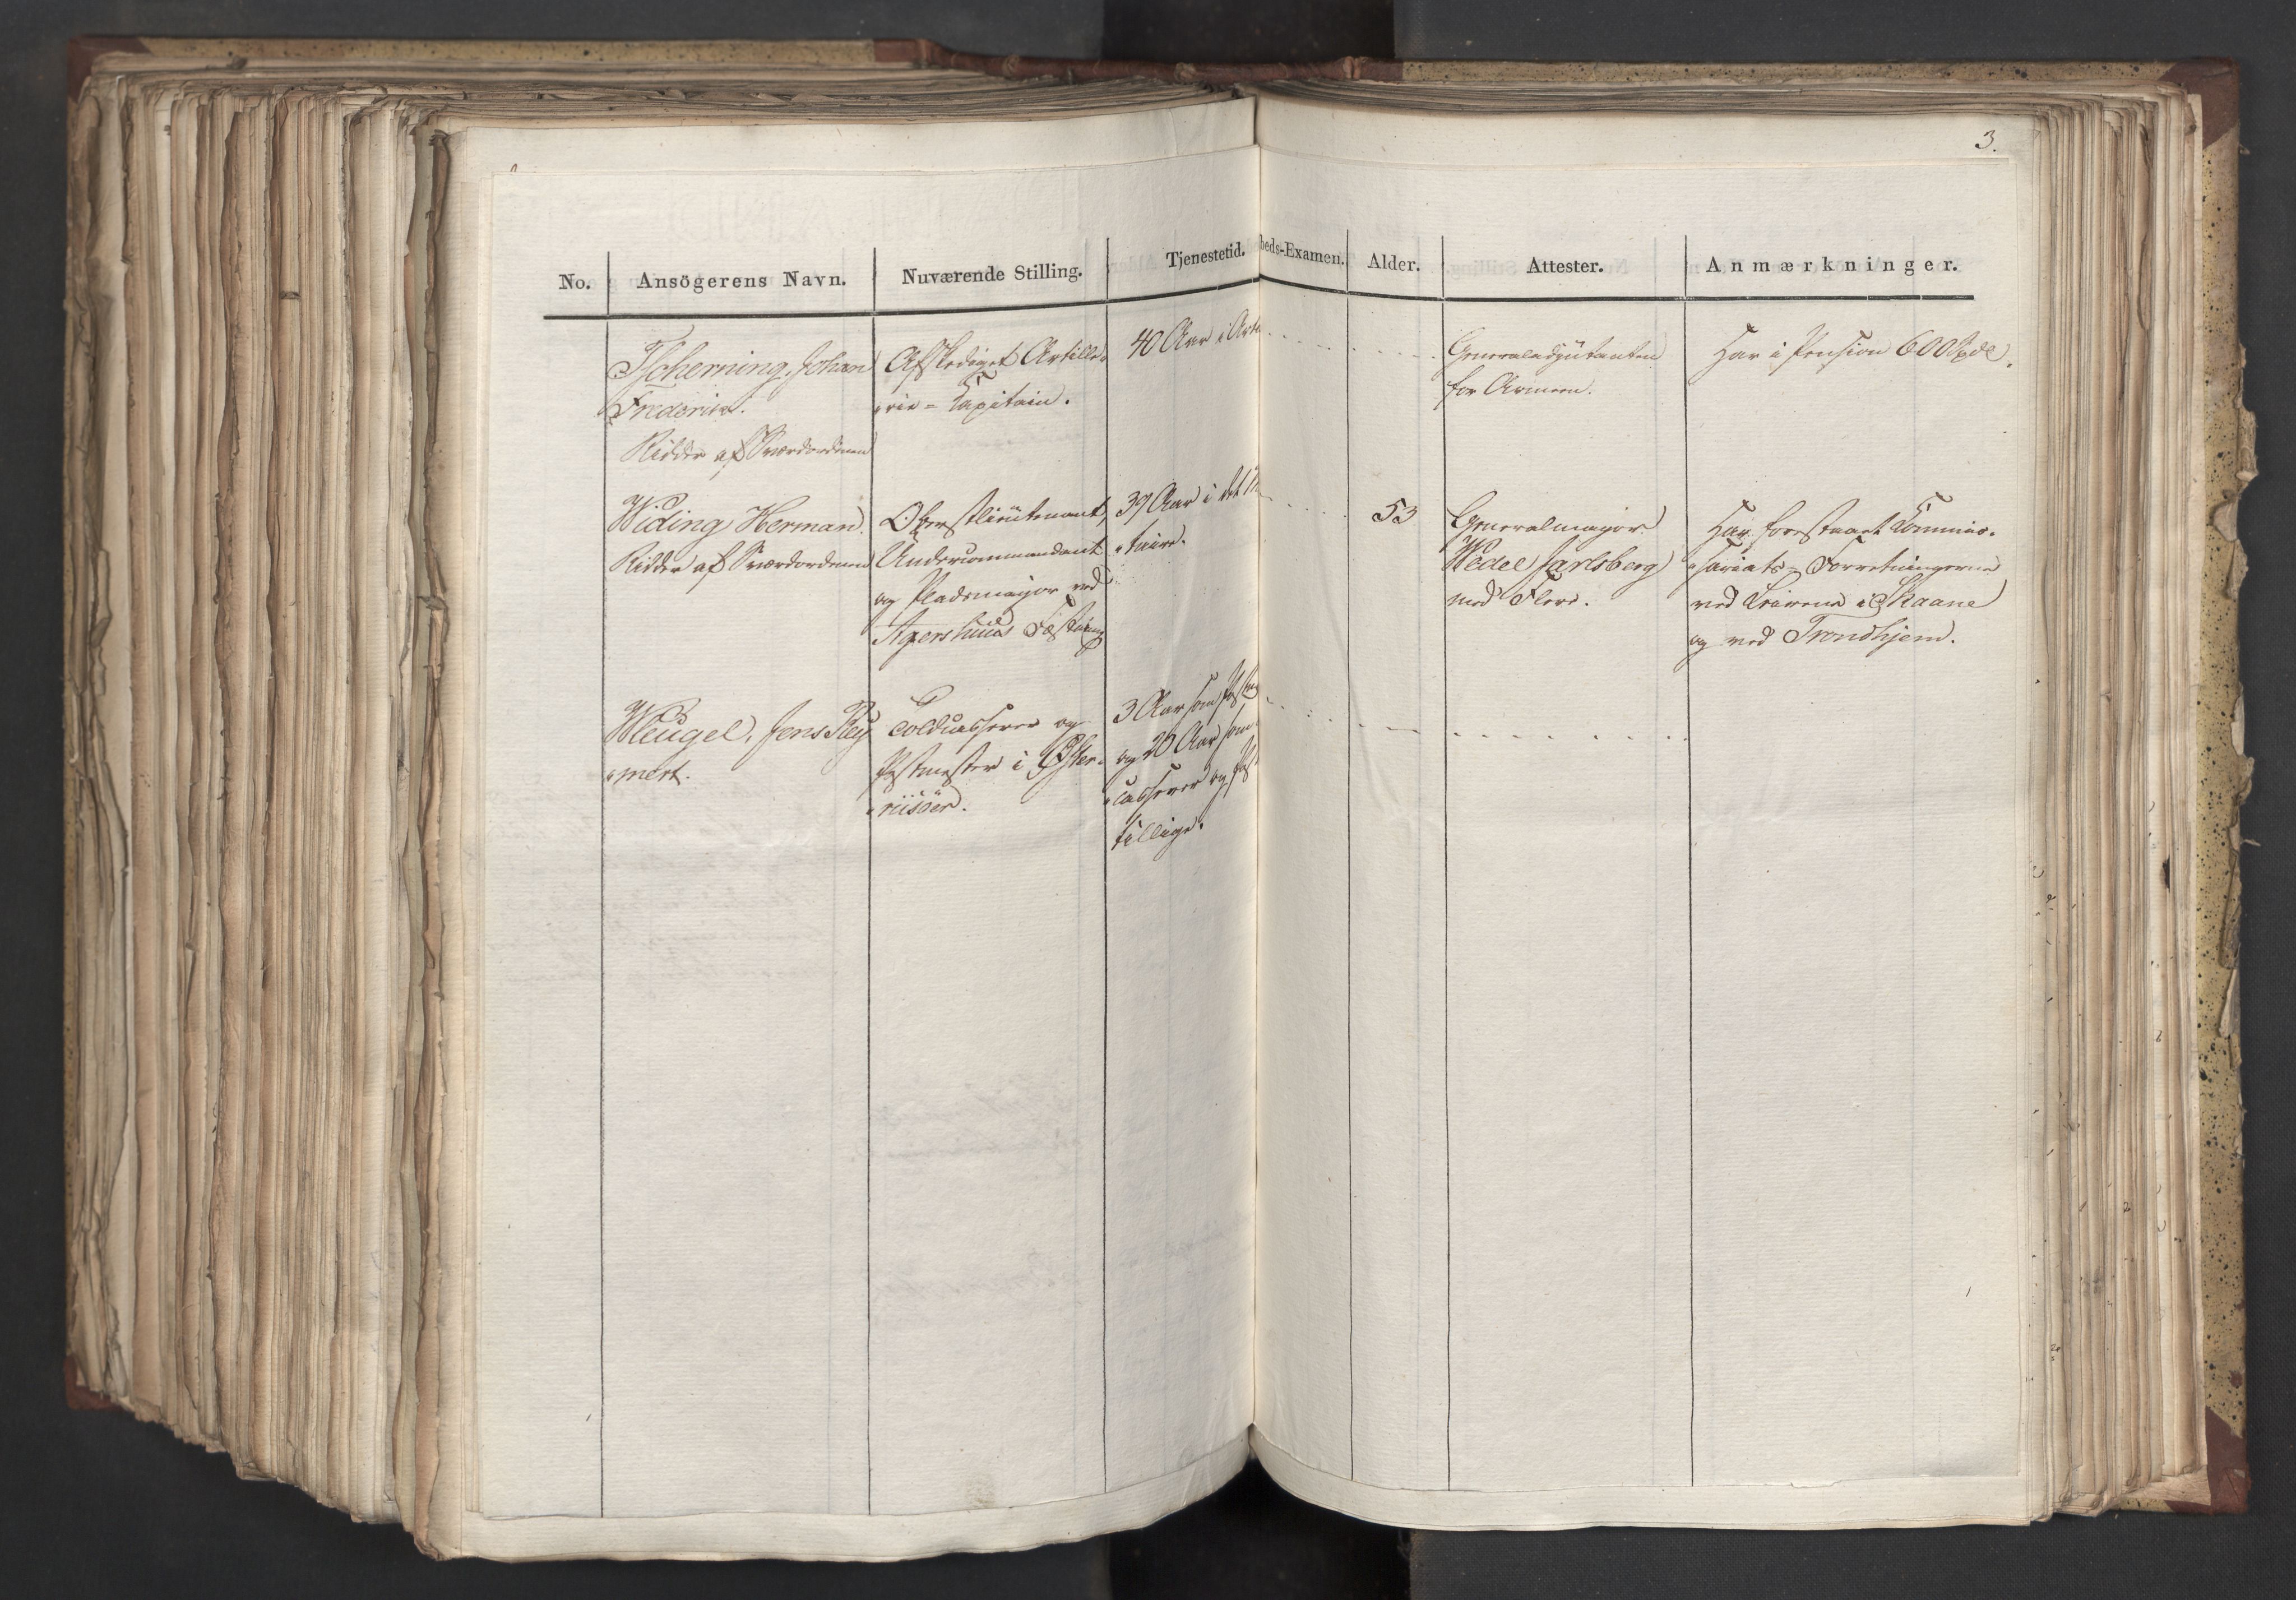 3.
No.
Ansögerens Navn.
Nuværende Stilling.
Tjenestetid.
heds-Examen.
Alder.
Attester.
Anmærkninger.
Tscherning, Johan
Frederik.
Ridder af Sværdordenen
Afskediget Artille-
rie-Capitain.
40 Aar i Art
Generaladjutanten
for Armeen.
Har i Pension 600 Spdl.
Widing Herman.
Ridder af Sværdordenen
Oberstlieutenant,
Undercommandant
og Pladsmajor ved
Agershuus Fæstning
39 Aar i det Mi
taire.
53
Generalmajor
Wedel Jarlsberg
med Flere.
Har forestaaet Commis-
sariats-Forretningerne
ved Leirene i Skaane
og ved Trondhjem.
Wleugel, Jens Rey
mert.
Toldcasserer og
Postmester i Øster-
riisöer.
3 Aar som
og 20 Aar som
casserer og Post
tillige.